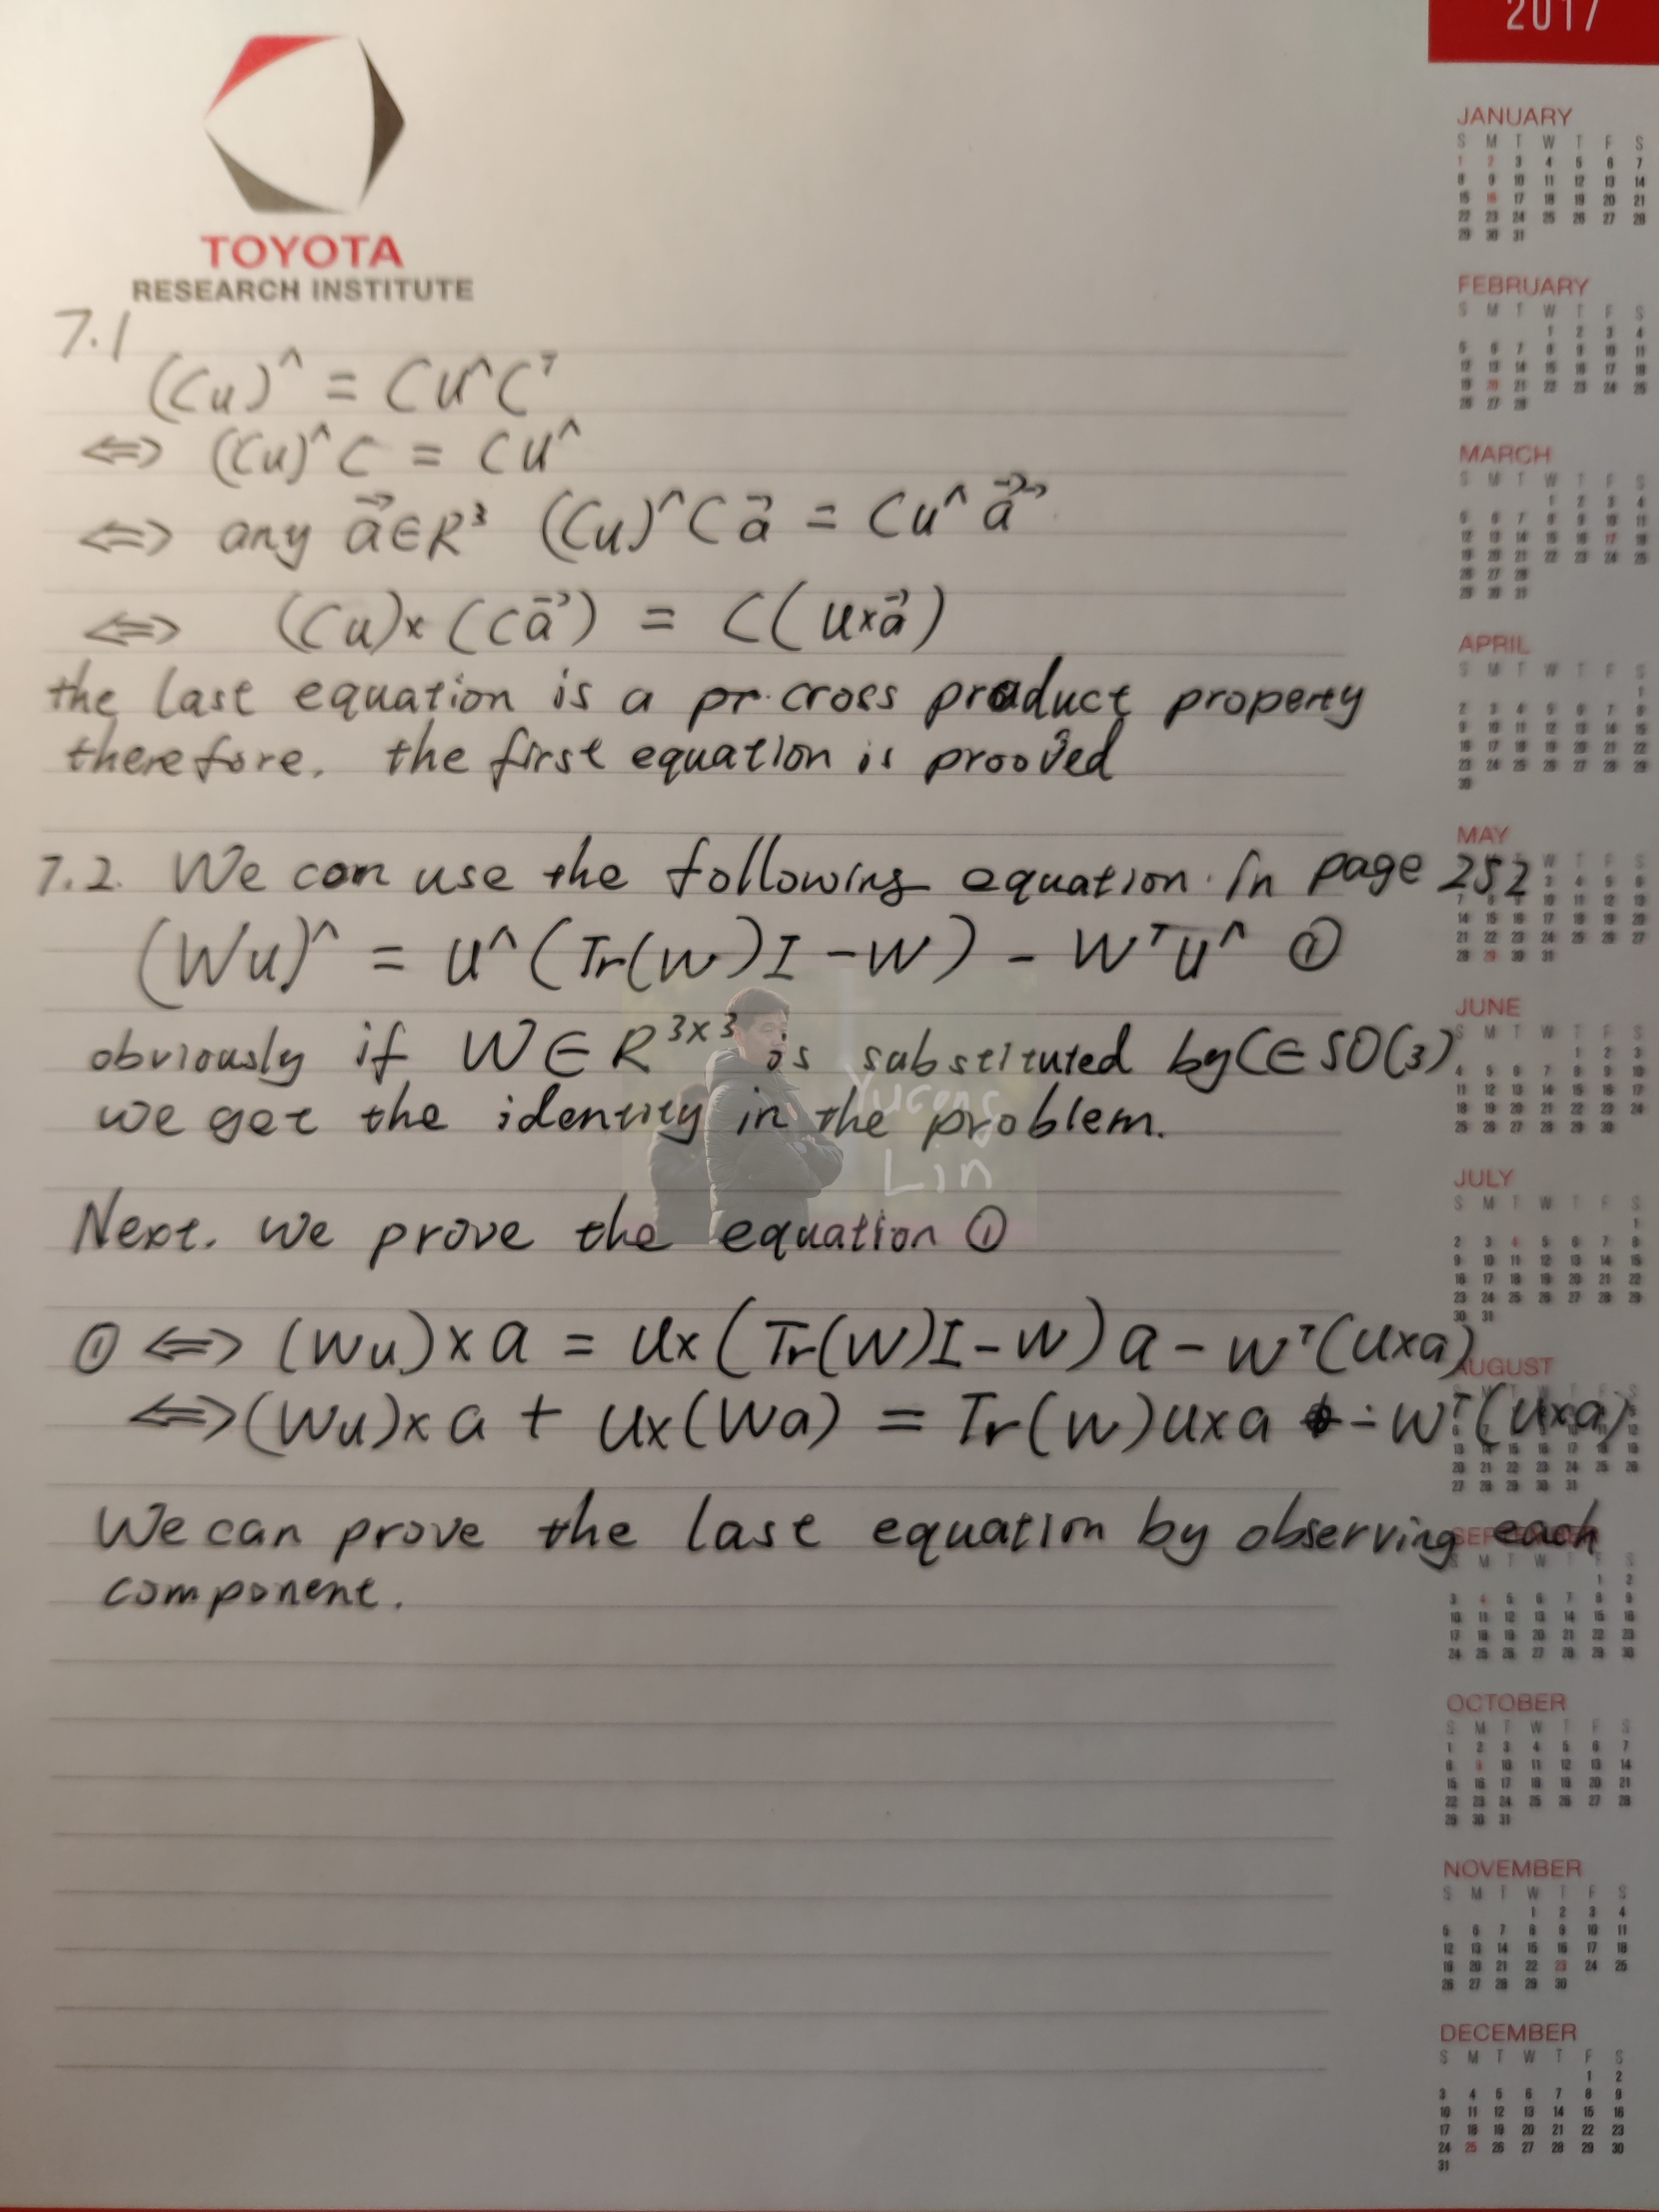 2017
TOYOTA
RESEARCH INSTITUTE
7.1
(Cu)^ = Cu^Cᵀ
⇔ (Cu)^C = Cu^
⇔ any a⃗∈R³ (Cu)^Ca⃗ = Cu^a⃗
⇔ (Cu)×(Ca⃗) = C(u×a⃗)
the last equation is a pr cross product property
therefore. the first equation is prooved
7.2. We can use the following equation in page 252
(Wu)^ = u^(Tr(W)I-W) - Wᵀu^ ①
obviously if W∈R³ˣ³ is substituted by C∈SO(3)
we get the identity in the problem.
Yucong
Lin
Next. we prove the equation ①
① ⇔ (Wu)×a = u×(Tr(W)I-W)a - Wᵀ(u×a)
⇔ (Wu)×a + u×(Wa) = Tr(W)u×a - Wᵀ(u×a)
We can prove the last equation by observing each
component.
JANUARY
S M T W T F S
1 2 3 4 5 6 7
8 9 10 11 12 13 14
15 16 17 18 19 20 21
22 23 24 25 26 27 28
29 30 31
FEBRUARY
S M T W T F S
1 2 3 4
5 6 7 8 9 10 11
12 13 14 15 16 17 18
19 20 21 22 23 24 25
26 27 28
MARCH
S M T W T F S
1 2 3 4
5 6 7 8 9 10 11
12 13 14 15 16 17 18
19 20 21 22 23 24 25
26 27 28
29 30 31
APRIL
S M T W T F S
1
2 3 4 5 6 7 8
9 10 11 12 13 14 15
16 17 18 19 20 21 22
23 24 25 26 27 28 29
30
MAY
7 8 9 10 11 12 13
14 15 16 17 18 19 20
21 22 23 24 25 26 27
28 29 30 31
JUNE
S M T W T F S
1 2 3
4 5 6 7 8 9 10
11 12 13 14 15 16 17
18 19 20 21 22 23 24
25 26 27 28 29 30
JULY
S M T W T F S
1
2 3 4 5 6 7 8
9 10 11 12 13 14 15
16 17 18 19 20 21 22
23 24 25 26 27 28 29
30 31
AUGUST
13 14 15 16 17 18 19
20 21 22 23 24 25 26
27 28 29 30 31
SEPTEMBER
S M T W T F S
1 2
3 4 5 6 7 8 9
10 11 12 13 14 15 16
17 18 19 20 21 22 23
24 25 26 27 28 29 30
OCTOBER
S M T W T F S
1 2 3 4 5 6 7
8 9 10 11 12 13 14
15 16 17 18 19 20 21
22 23 24 25 26 27 28
29 30 31
NOVEMBER
S M T W T F S
1 2 3 4
5 6 7 8 9 10 11
12 13 14 15 16 17 18
19 20 21 22 23 24 25
26 27 28 29 30
DECEMBER
S M T W T F S
1 2
3 4 5 6 7 8 9
10 11 12 13 14 15 16
17 18 19 20 21 22 23
24 25 26 27 28 29 30
31